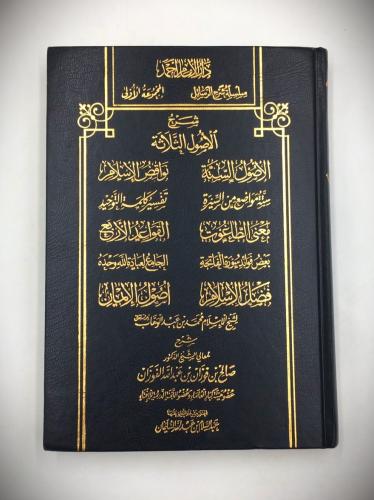 دار الإمام أحمد
سلسلة شرح الرسائل المجموعة الأولى
شرح
الأصول الثلاثة
الأصول الستة نواقض الإسلام
ستة مواضع من السيرة تفسير كلمة التوحيد
معنى الطاغوت القواعد الأربع
بعض فوائد سورة الفاتحة الجامع لعبادة الله وحده
فضل الإسلام أصول الإيمان
لشيخ الإسلام محمد بن عبد الوهاب
شرح
معالي الشيخ الدكتور
صالح بن فوزان بن عبد الله الفوزان
عبد السلام بن عبد الله السليمان